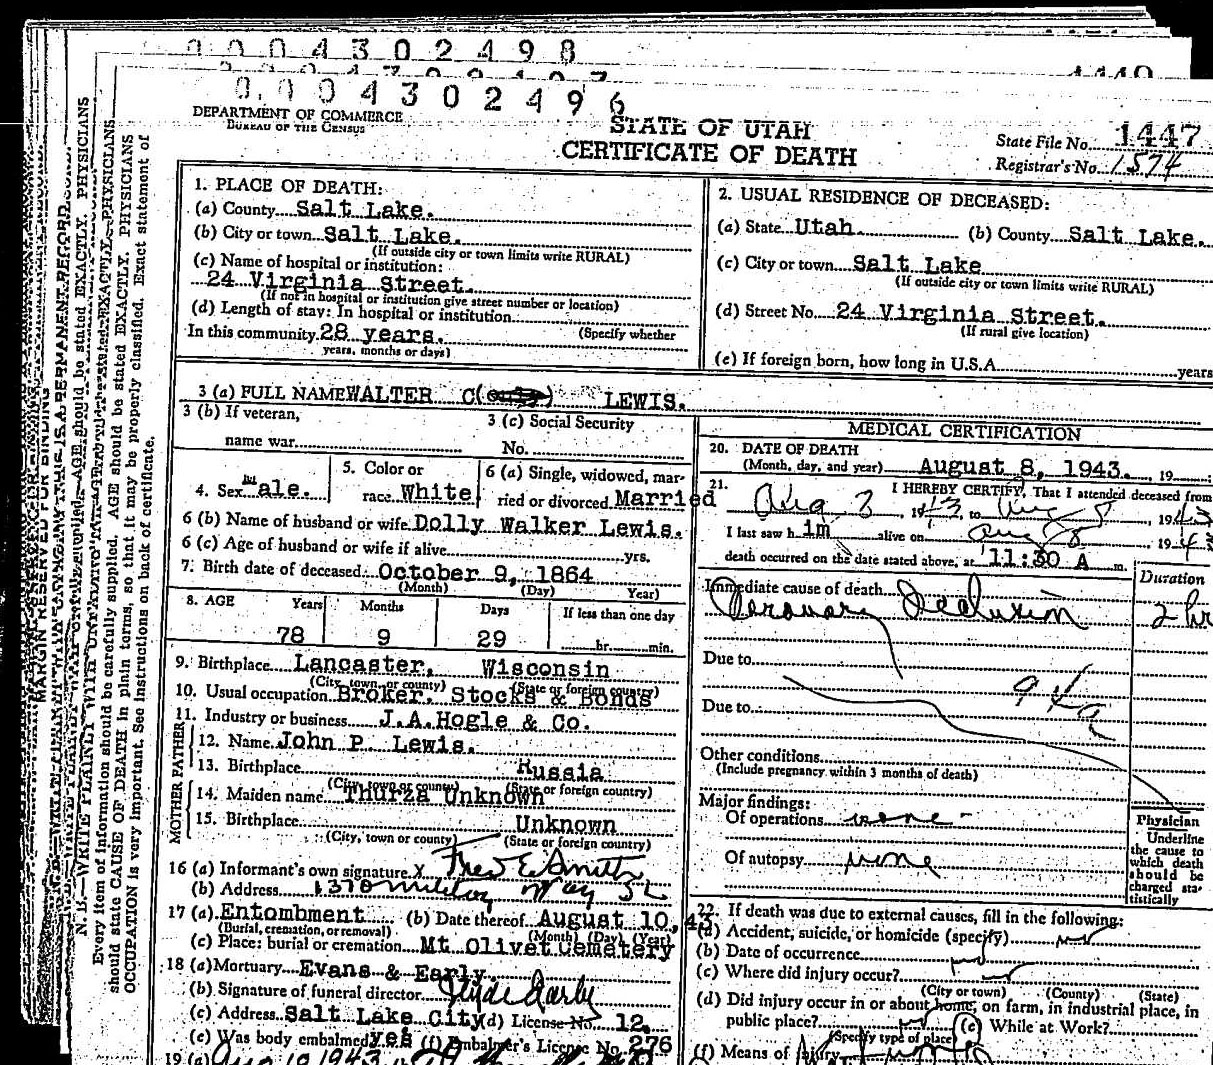 0004302498
1449
0004302496
DEPARTMENT OF COMMERCE
BUREAU OF THE CENSUS
STATE OF UTAH
CERTIFICATE OF DEATH
State File No. 1447
Registrar's No. 1574
1. PLACE OF DEATH:
(a) County Salt Lake.
(b) City or town Salt Lake.
(If outside city or town limits write RURAL)
(c) Name of hospital or institution:
24 Virginia Street.
(If not in hospital or institution give street number or location)
(d) Length of stay: In hospital or institution
In this community 28 years. (Specify whether
years, months or days)
2. USUAL RESIDENCE OF DECEASED:
(a) State Utah. (b) County Salt Lake.
(c) City or town Salt Lake
(If outside city or town limits write RURAL)
(d) Street No. 24 Virginia Street.
(If rural give location)
(e) If foreign born, how long in U.S.A. years
3 (a) FULL NAME WALTER C LEWIS.
3 (b) If veteran,
name war
3 (c) Social Security
No.
4. Sex Male.
5. Color or
race White
6 (a) Single, widowed, mar-
ried or divorced Married
6 (b) Name of husband or wife Dolly Walker Lewis.
6 (c) Age of husband or wife if alive yrs.
7. Birth date of deceased: October 9, 1864
(Month) (Day) Year)
8. AGE Years Months Days If less than one day
78 9 29 hr. min.
9. Birthplace Lancaster, Wisconsin
(City, town, or county) (State or foreign country)
10. Usual occupation Broker. Stocks & Bonds
11. Industry or business J.A.Hogle & Co.
FATHER
12. Name John P. Lewis.
13. Birthplace Russia
(City, town or county) (State or foreign country)
MOTHER
14. Maiden name Thurza Unknown
15. Birthplace Unknown
(City, town or county) (State or foreign country)
16 (a) Informant's own signature X Fred E Smith
(b) Address 1370 Military Way SL
17 (a) Entombment (b) Date thereof August 10, 43
(Burial, cremation, or removal) (Month) (Day) (Year)
(c) Place: burial or cremation Mt Olivet Cemetery
18 (a) Mortuary Evans & Early
(b) Signature of funeral director Clyde Darby
(c) Address Salt Lake City (d) License No. 12.
(e) Was body embalmed yes (f) Embalmer's License No. 276
19 (a) Aug 10 1943
MEDICAL CERTIFICATION
20. DATE OF DEATH
(Month, day, and year) August 8, 1943. 19
21. I HEREBY CERTIFY, That I attended deceased from
Aug 3, 1943, to Aug 8, 1943
I last saw h im alive on Aug 8 194
death occurred on the date stated above, at 11:30 A m.
Duration
Immediate cause of death
Coronary Occlusion 2 hr
Due to
94a
Due to
Other conditions
(Include pregnancy within 3 months of death)
Major findings:
Of operations none
Of autopsy none
Physician
Underline
the cause to
which death
should be
charged sta-
tistically
22. If death was due to external causes, fill in the following:
(a) Accident, suicide, or homicide (specify)
(b) Date of occurrence
(c) Where did injury occur?
(City or town) (County) (State)
(d) Did injury occur in or about home, on farm, in industrial place, in
public place? (e) While at Work?
(Specify type of place)
(f) Means of Injury
MARGIN RESERVED FOR BINDING
N. B.—WRITE PLAINLY WITH
Every item of information should be carefully supplied. AGE should be stated EXACTLY. PHYSICIANS
should state CAUSE OF DEATH in plain terms, so that it may be properly classified. Exact statement of
OCCUPATION is very important. See instructions on back of certificate.